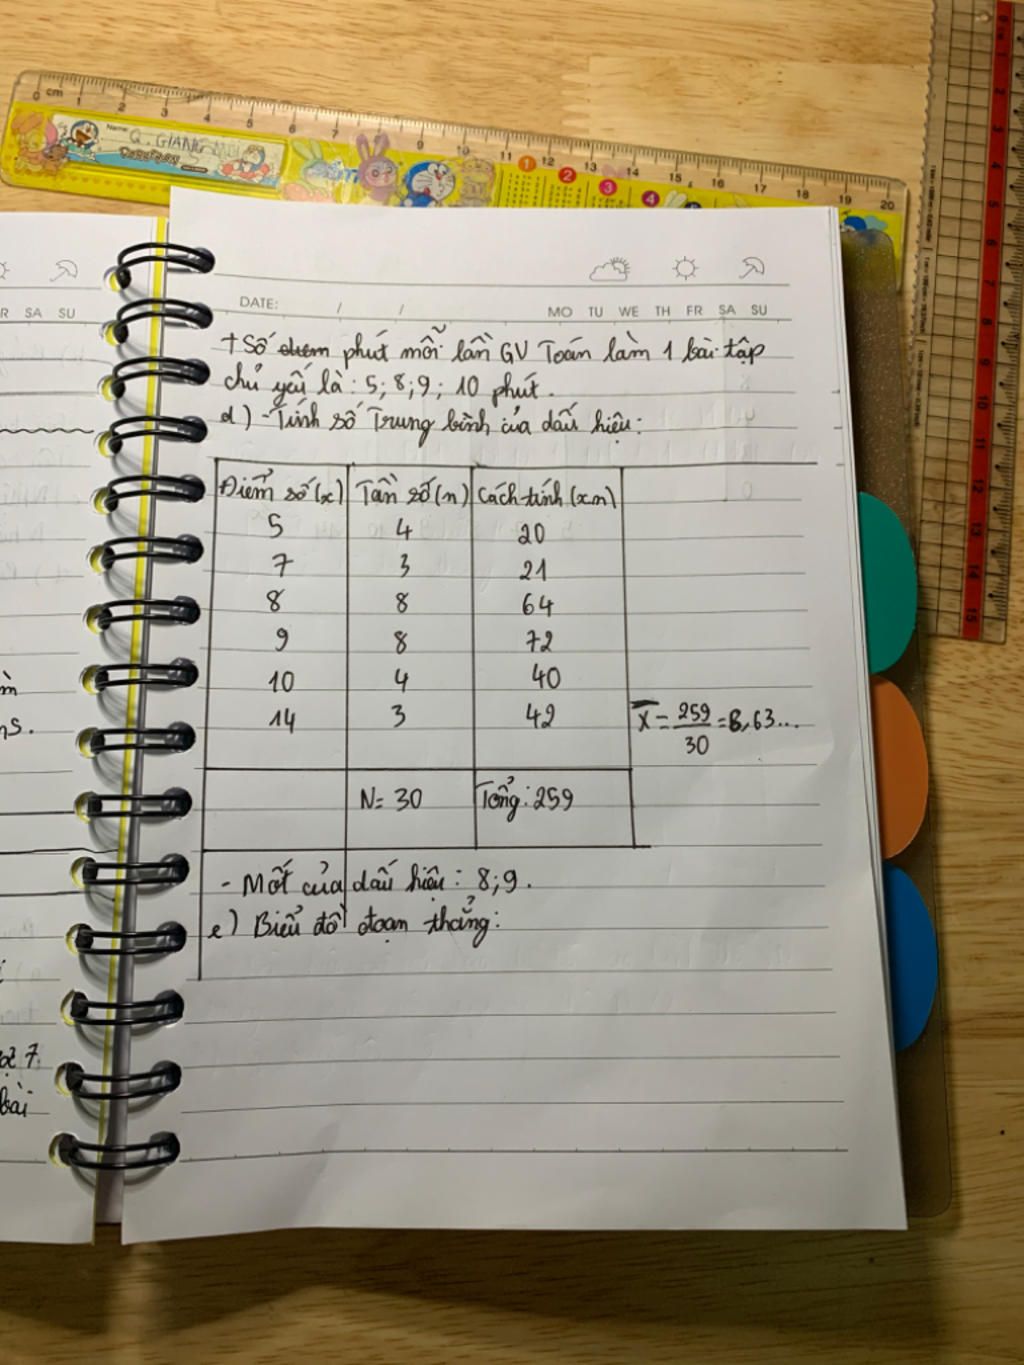 0 cm 1 2 3 4 5 6 7 8 9 10 11 12 13 14 15 16 17 18 19 20
Name: Q. GIANG
DORAEMON
1 2 3 4
0 cm 1 2 3 4 5 6 7 8 9 10 11 12 13 14 15
R SA SU
DATE: / /
MO TU WE TH FR SA SU
+ Số điểm phút mỗi lần GV Toán làm 1 bài tập
chủ yếu là: 5; 8; 9; 10 phút.
d) - Tính số Trung bình của dấu hiệu:
Điểm số (x) Tần số (n) Cách tính (x.n)
5 4 20
7 3 21
8 8 64
9 8 72
10 4 40
14 3 42 X = 259/30 = 8,63...
N= 30 Tổng: 259
- Mốt của dấu hiệu: 8; 9.
e) Biểu đồ đoạn thẳng:
7
bài